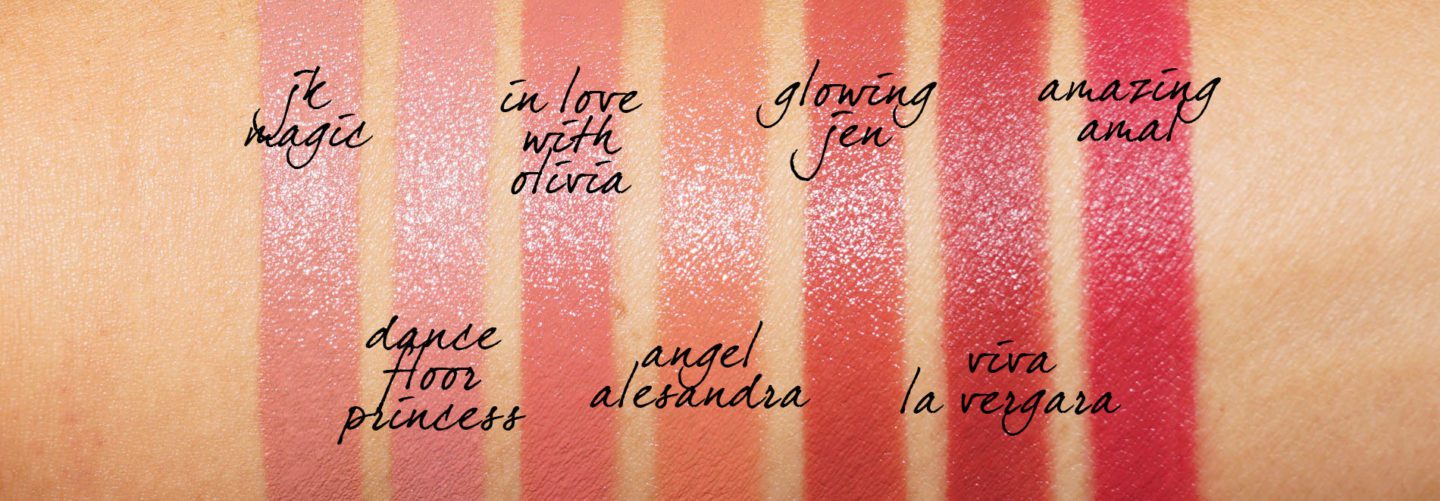 jk
magic
in love
with
olivia
glowing
jen
amazing
amal
dance
floor
princess
angel
alesandra
viva
la vergara